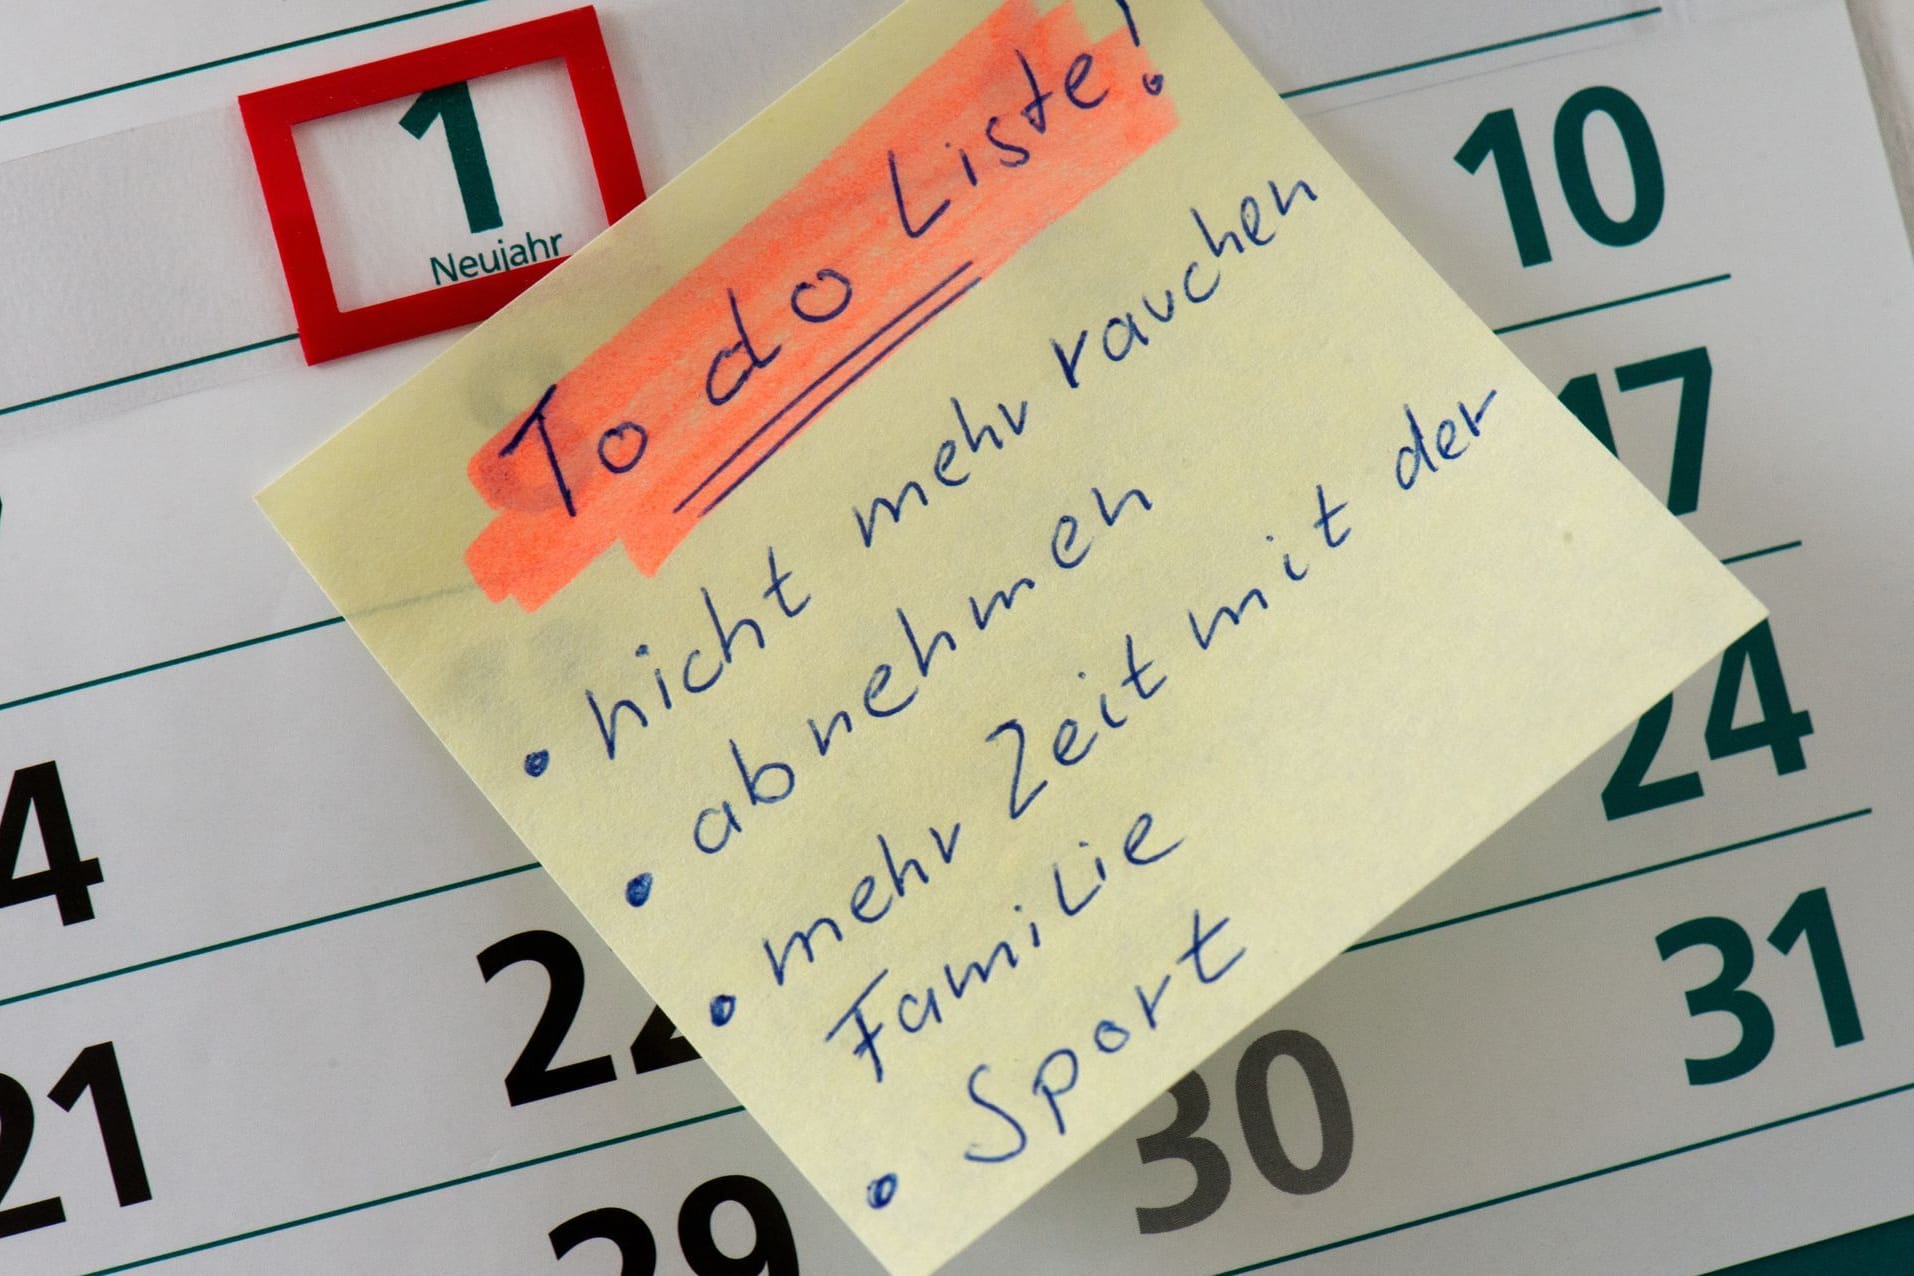 1
Neujahr
To do Liste!
• nicht mehr rauchen
• abnehmen
• mehr Zeit mit der
Familie
• Sport
10
17
24
31
4
21
22
29
30